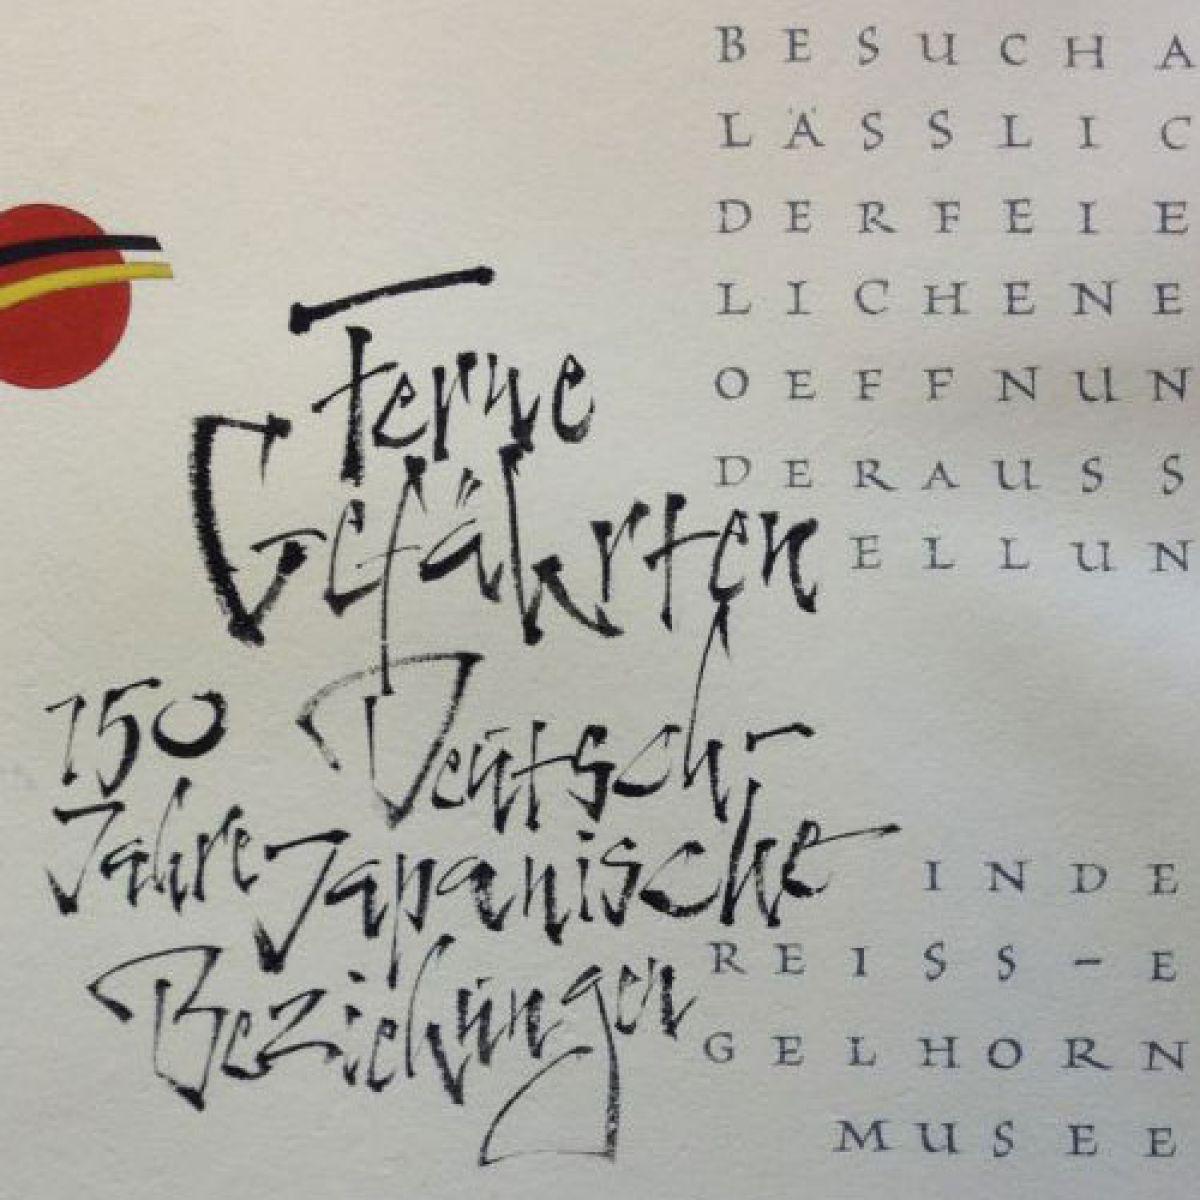 BESUCHA
LÄSSLIC
DERFEIE
LICHENE
OEFFNUN
DERAUSS
ELLUN
Ferne
Gefährten
150
Deutsch-
Jahre Japanische
Beziehungen
INDE
REISS-E
GELHORN
MUSEE